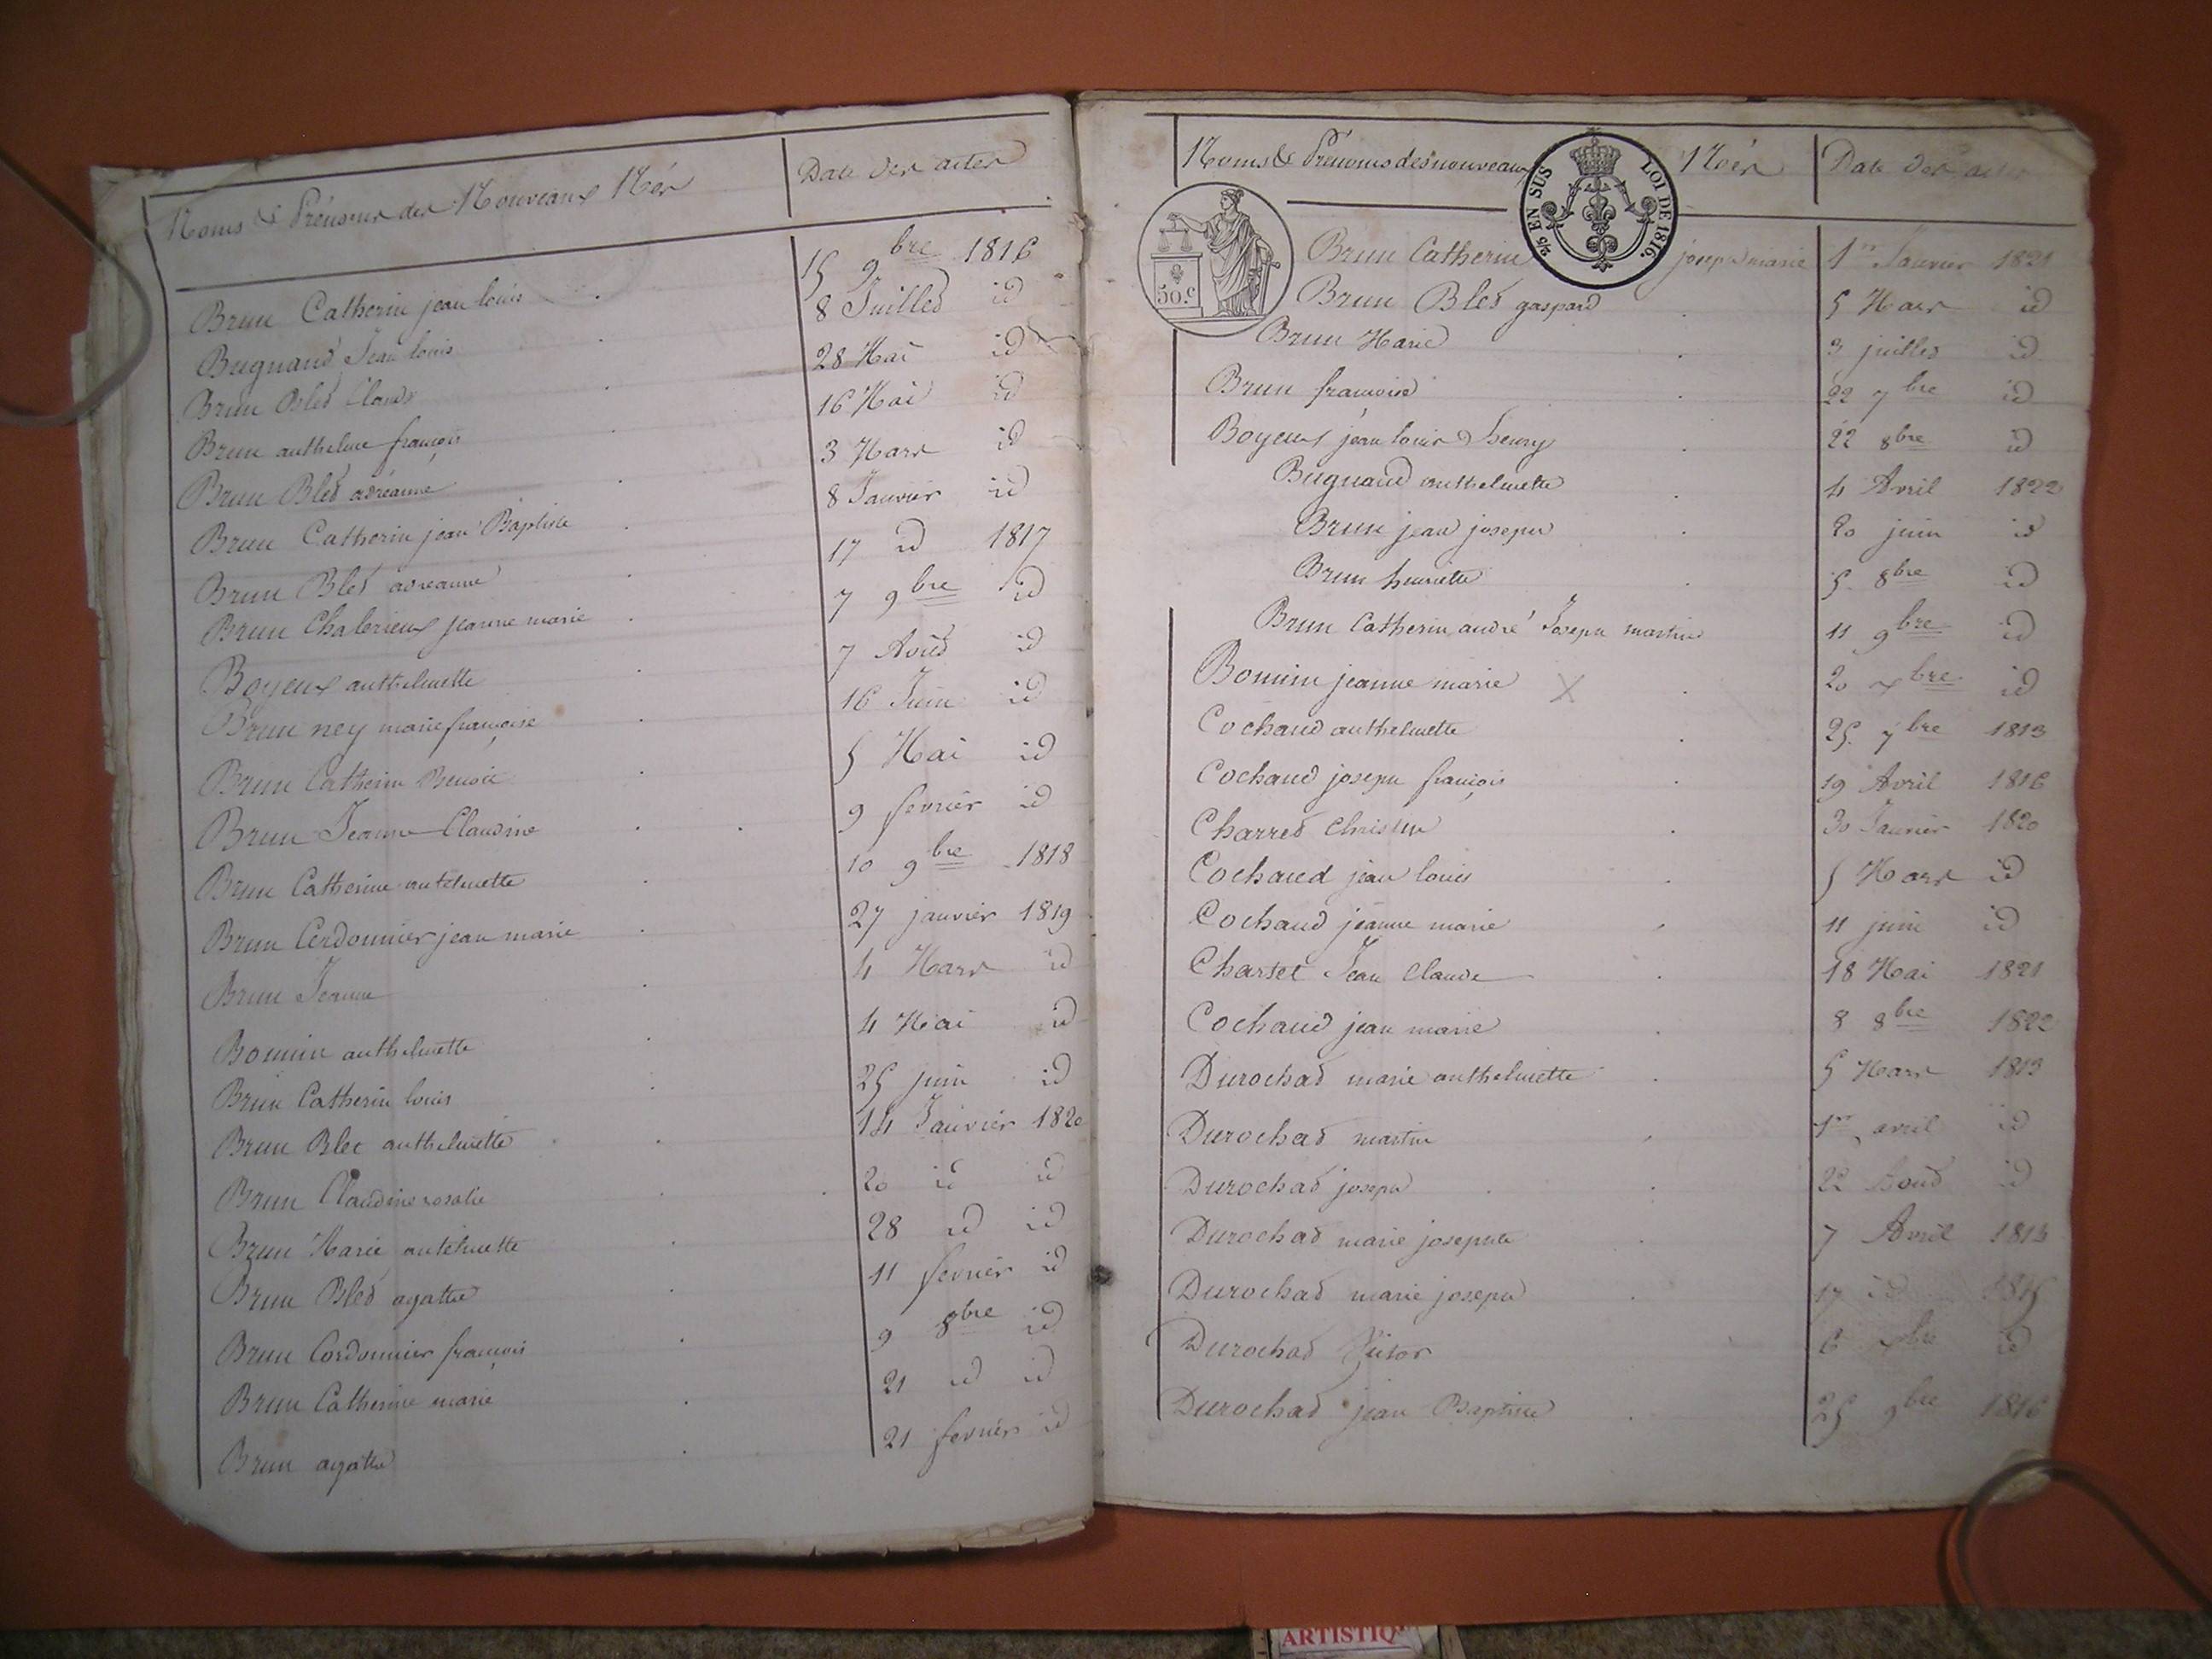 Noms & Prénoms des Nouveaux Nés Date des actes
Brun Catherin jean louis 15 9bre 1816
Bugnand Jean louis 8 Juillet id
Brun Blet Claude 28 Mai id
Brun anthelme françois 16 Mai id
Brun Blet adréanne 3 Mars id
Brun Catherin jean Baptiste 8 Janvier id
Brun Blet adréanne 17 id 1817
Brun Chalerieux jeanne marie 7 9bre id
Boyeux anthelmette 7 Août id
Brun ney marie françoise 16 Juin id
Brun Catherin Benoit 5 Mai id
Brun Jeanne Claudine 9 fevrier id
Brun Catherine antelmette 10 9bre 1818
Brun Cordonnier jean marie 27 janvier 1819
Brun Jeanne 4 Mars id
Bonnin anthelmette 4 Mai id
Brun Catherin louis 25 juin id
Brun Blet anthelmette 14 Janvier 1820
Brun Claudine rosalie 20 id id
Brun Marie antelmette 28 id id
Brun Blet agathe 11 fevrier id
Brun Cordonnier françois 9 8bre id
Brun Catherine marie 21 id id
Brun agathe 21 fevrier id
Noms & Prénoms des nouveaux Nés Date des actes
2/5 EN SUS LOI DE 1816.
50.c
Brun Catherin joseph marie 1er Janvier 1821
Brun Blet gaspard 5 Mars id
Brun Marie 3 juillet id
Brun françoise 22 7bre id
Boyeux jean louis henry 22 8bre id
Bugnand anthelmette 4 Avril 1822
Brun jean joseph 20 juin id
Brun henriette 5 8bre id
Brun Catherin andré Joseph martin 11 9bre id
Bonnin jeanne marie X 20 xbre id
Cochand anthelmette 25 7bre 1813
Cochand joseph françois 19 Avril 1816
Charret Christine 30 Janvier 1820
Cochand jean louis 5 Mars id
Cochand jeanne marie 11 juin id
Charset Jean Claude 18 Mai 1821
Cochand jean marie 8 8bre 1822
Durochat marie anthelmette 5 Mars 1813
Durochat martin 1er avril id
Durochat joseph 22 Août id
Durochat marie josephte 7 Avril 1814
Durochat marie joseph 17 id 1815
Durochat 6 xbre id
Durochat jean Baptiste 25 9bre 1816
ARTISTIQ